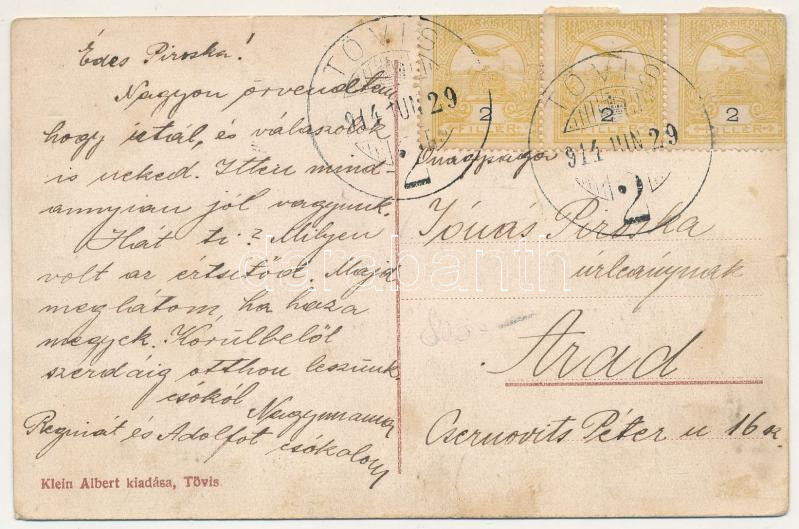 Édes Piroska!
Nagyon örvendtem,
hogy irtál, és válaszolok
is neked. Itten mind-
annyian jól vagyunk.
Hát ti? Milyen
volt az értesitőd. Majd
meglátom, ha haza
megyek. Körülbelől
szerdáig otthon leszünk.
csókol Nagymama
Reginát és Adolfot csókolom
Klein Albert kiadása, Tövis
MAGYAR KIR. POSTA
MAGYAR KIR. POSTA
MAGYAR KIR. POSTA
2
2
2
FILLÉR
FILLÉR
FILLÉR
TÖVIS
914 JUN 29
2
TÖVIS
914 JUN 29
2
Őnagysága
Jónás Piroska
úrleánynak
Arad
Csernovits Péter u 16 sz.
darabanth